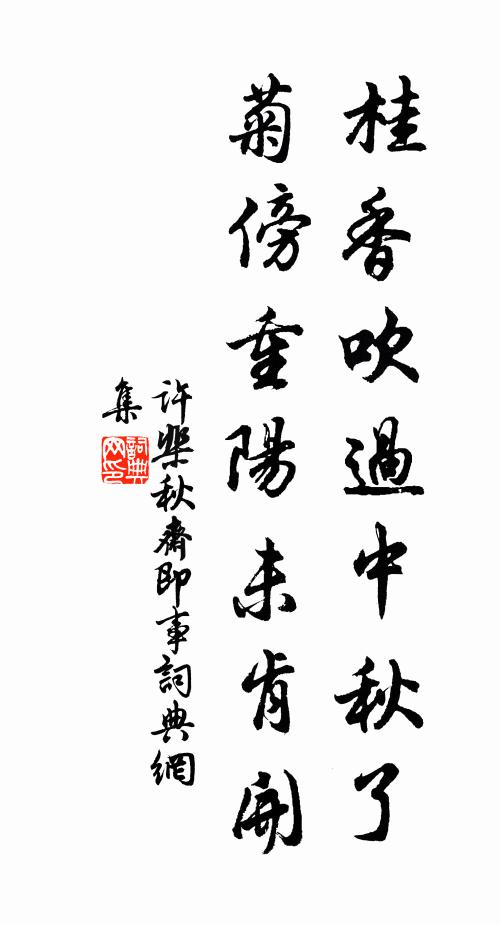 桂香吹過中秋了
菊傍重陽未肯開
許棐秋齋即事詞典網
集
詞典網印